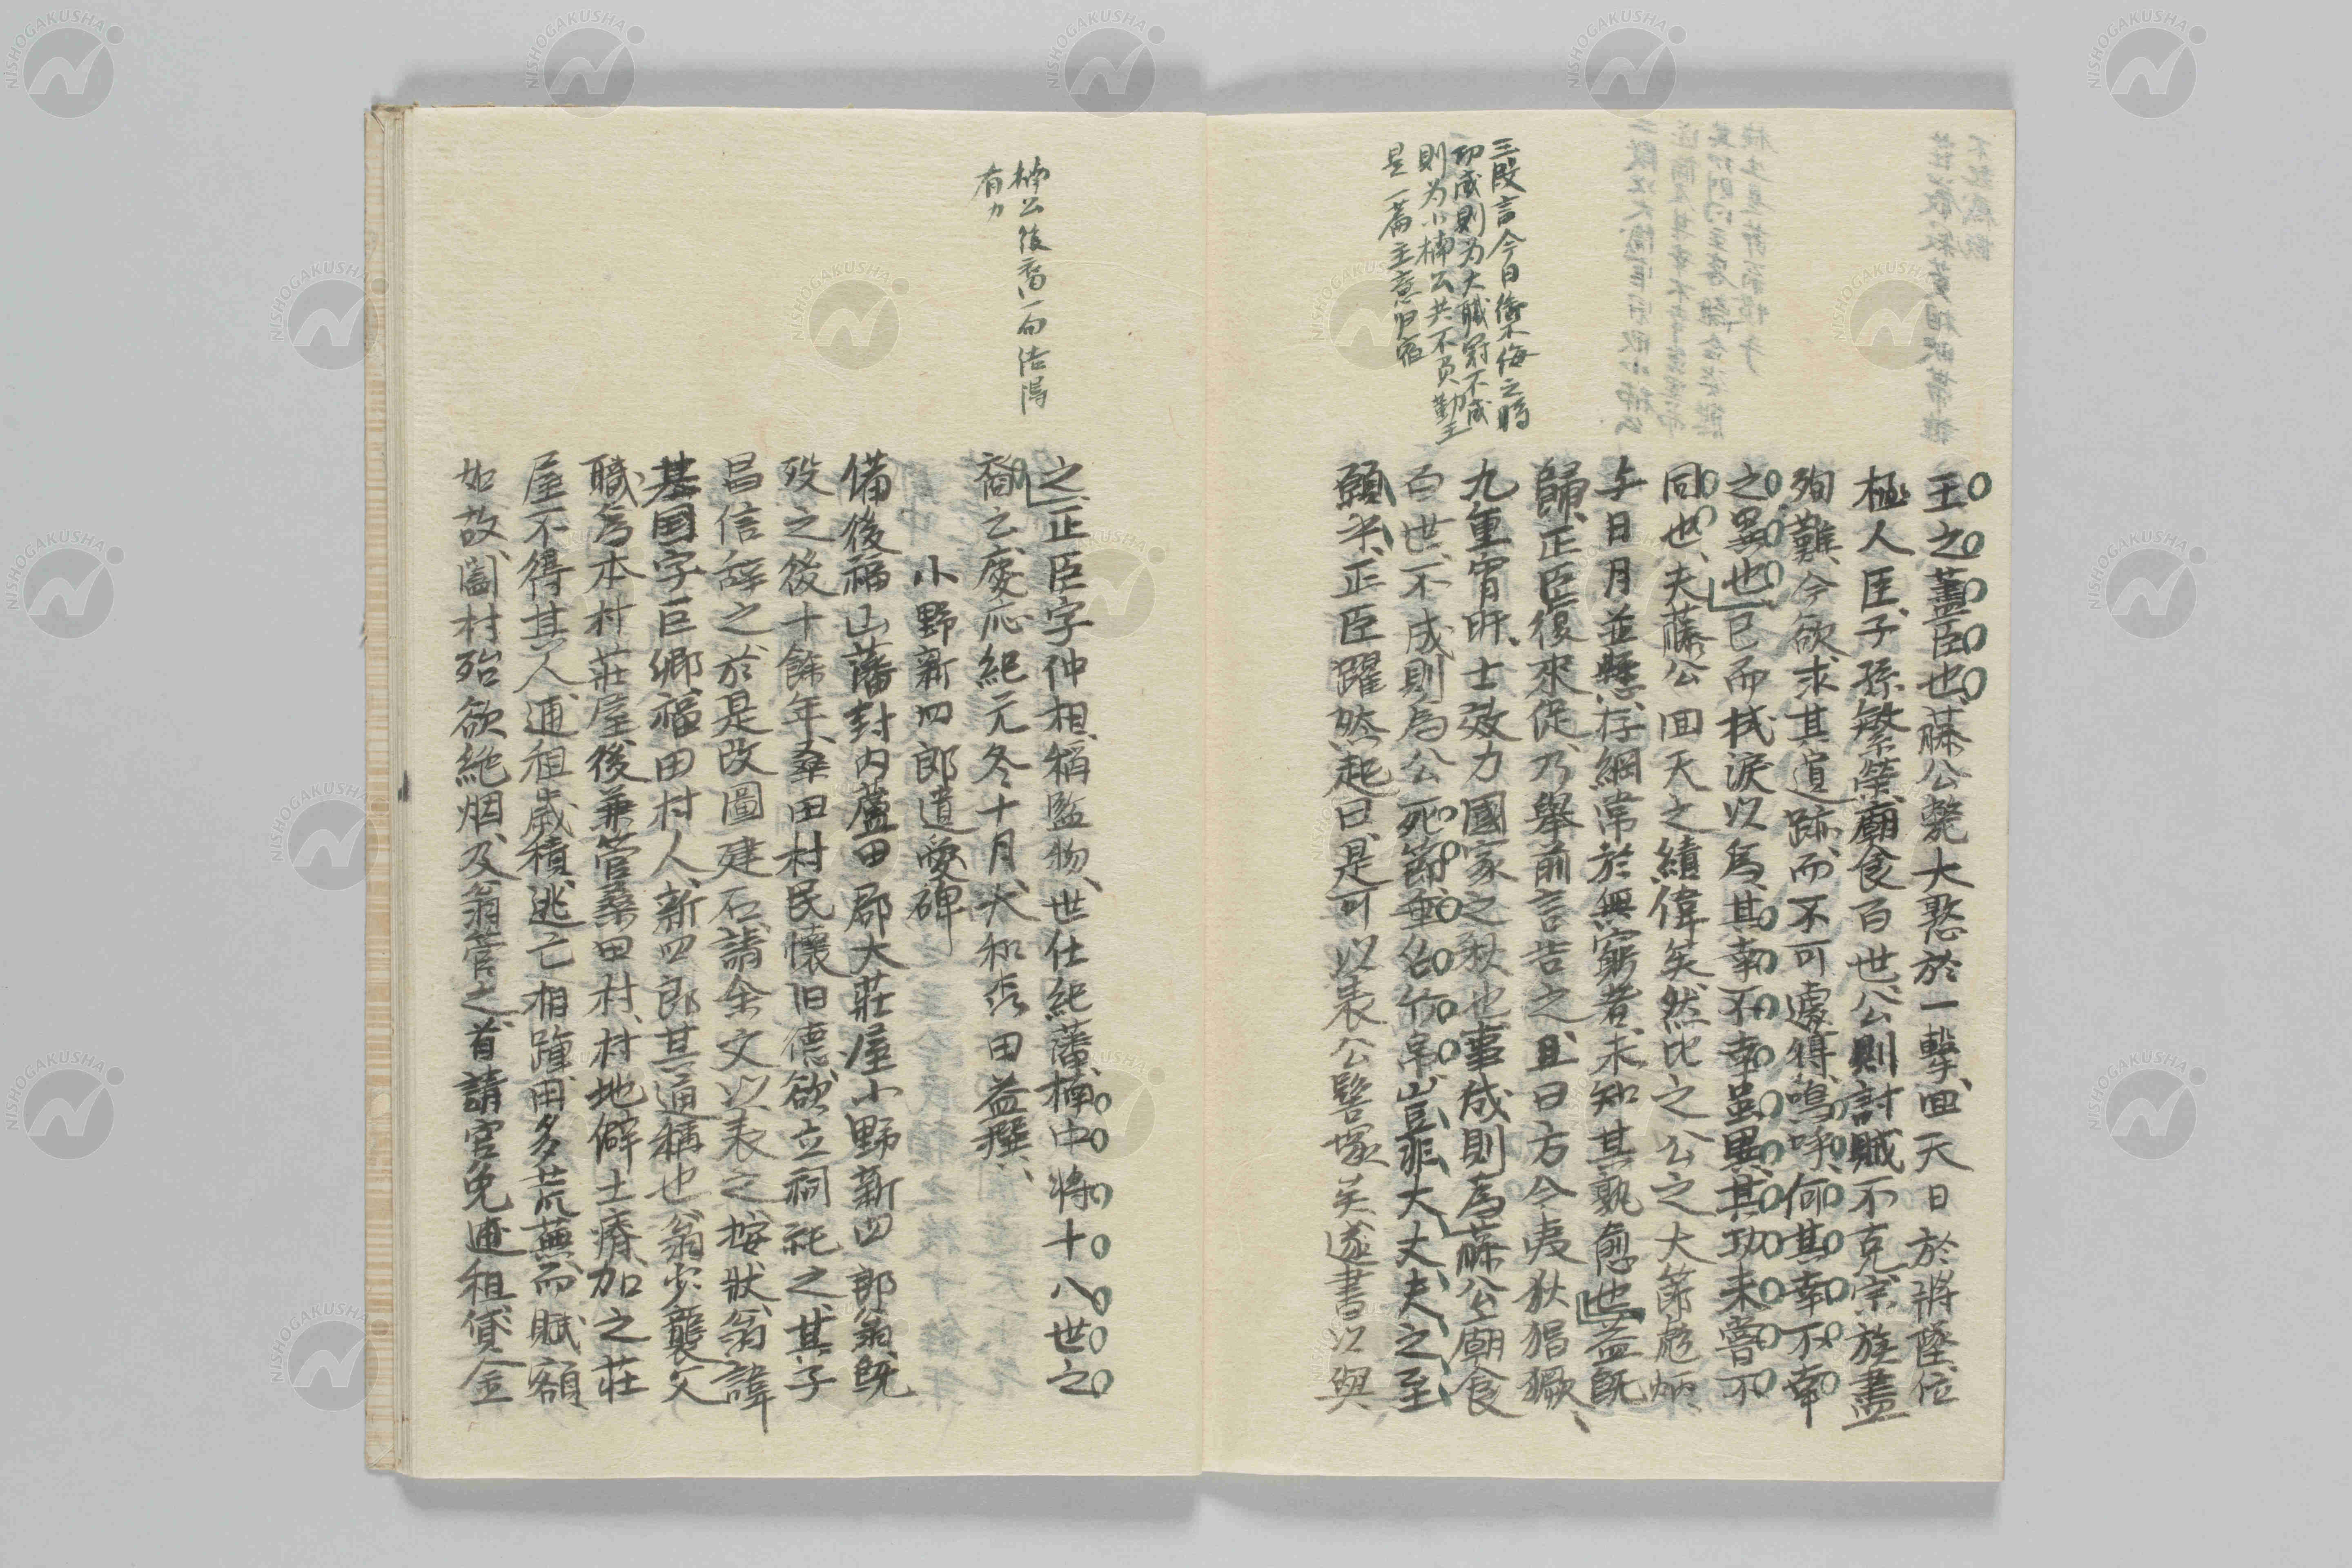 三段言今日衛不侮之時
功成則为大職冠不成
則为小楠公共不負勤王
是一篇主意归宿
王之藎臣也、藤公斃大憝於一擊、回天日於將墜、位
極人臣、子孫繁榮、廟食百世、公則討賊不克、宗族盡
殉難、今欲求其遺跡、而不可遽得、嗚呼、何其幸不幸
之異也、已而拭淚以爲、其幸不幸虽異、其功未嘗不
同也、夫藤公回天之績偉矣、然比之公之大節彪炳
与日月並懸、存綱常於無窮者、未知其孰愈也、益既
歸、正臣復來促、乃舉前言告之、且曰方今夷狄猖獗、
九重宵旰、士效力國家之秋也、事成則爲藤公廟食
百世、不成則爲公死節垂名竹帛、豈非大丈夫之至
願乎、正臣躍然起曰、是可以表公髻塚矣、遂書以與
楠公後裔一句結得
有力
之、正臣字仲相、稱監物、世仕紀藩、楠中将十八世之
裔云、慶応紀元冬十月、大和森田益撰、
小野新四郎遺愛碑
備後福山藩封内蘆田郡大莊屋小野新四郎翁、既
歿之後十餘年、桑田村民懷旧德、欲立祠祀之、其子
昌信辞之、於是改圖建石、請余文以表之、按狀、翁諱
基国、字巨卿、福田村人、新四郎其通稱也、翁少襲父
職、爲本村莊屋、後兼管桑田村、村地僻土瘠、加之莊
屋不得其人、逋租歳積、逃亡相踵、田多荒蕪、而賦額
如故、闔村殆欲絶烟、及翁管之、首請官免逋租、貸金